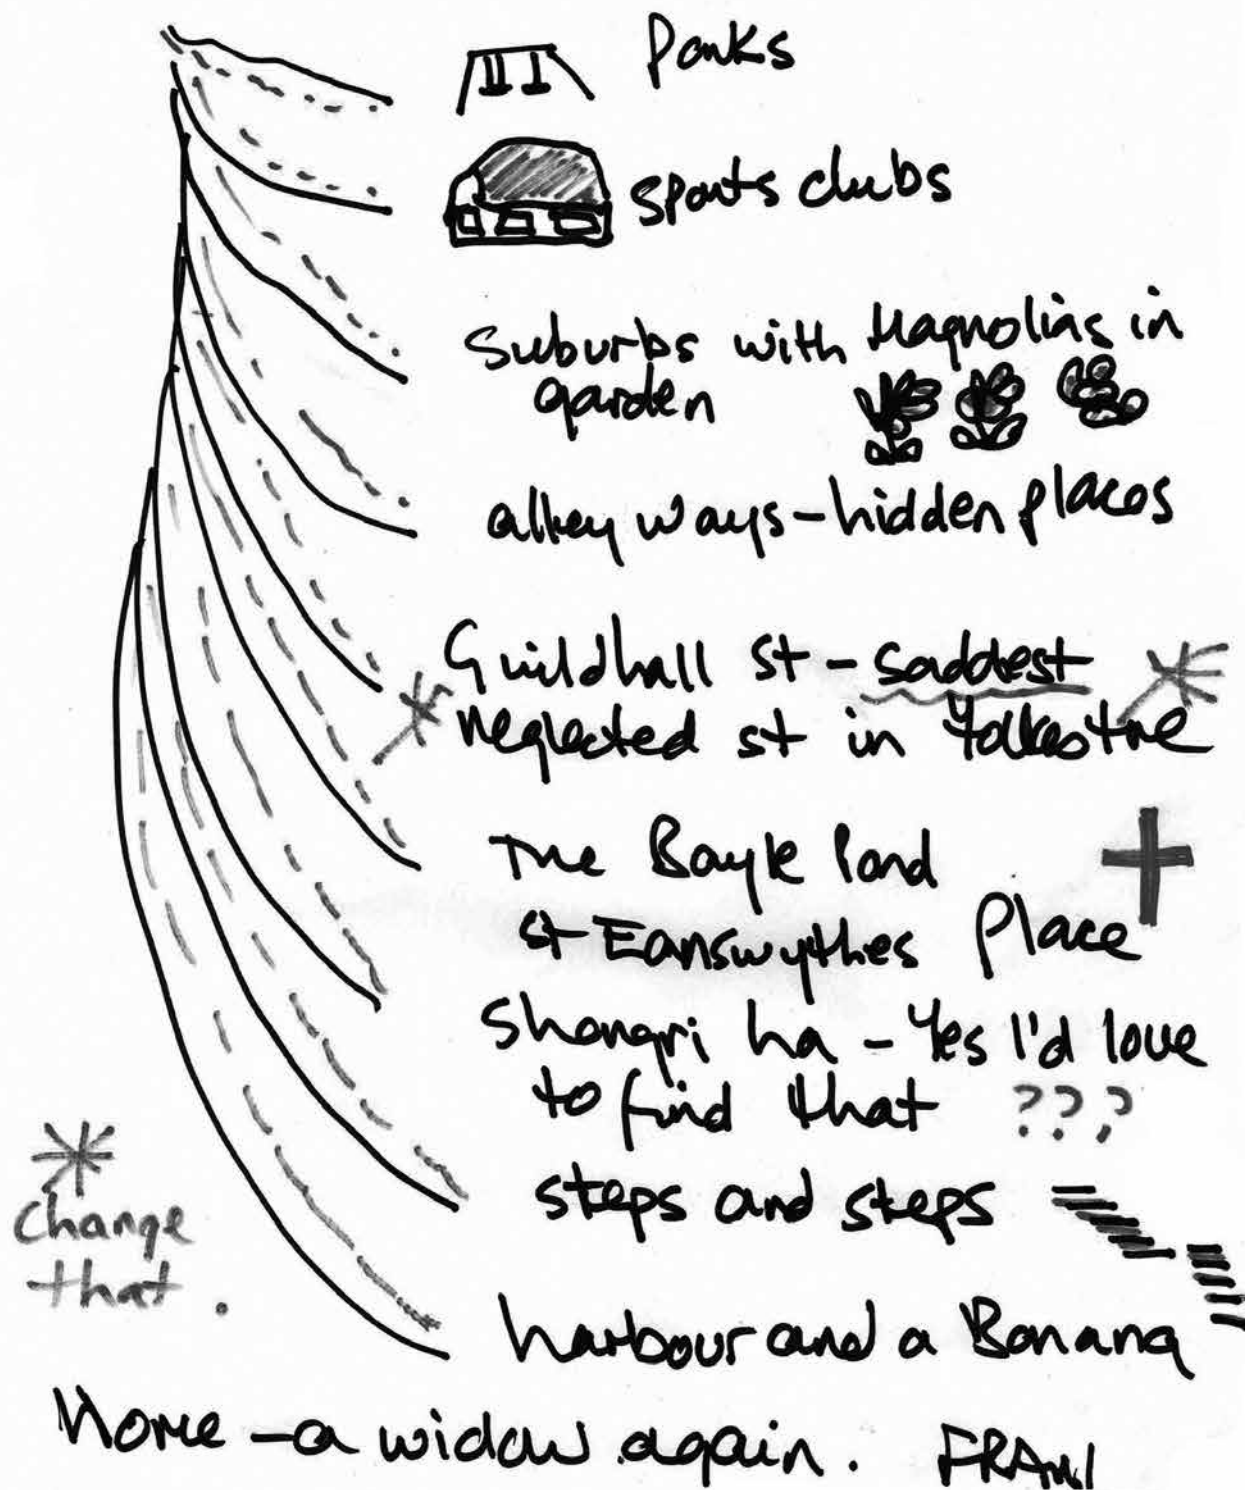 Parks
sports clubs
Suburbs with Magnolias in
garden
alley ways - hidden places
Guildhall st - saddest
neglected st in Folkestone
The Bayle Pond
st Eanswythes Place
Shangri La - Yes I'd love
to find that ???
steps and steps
Change
that.
harbour and a Banana
Home - a widow again.